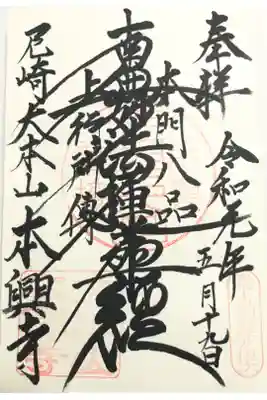 奉拝
令和元年
五月十九日
本門八品
南無妙法蓮華経
上行所傳
尼崎大本山本興寺